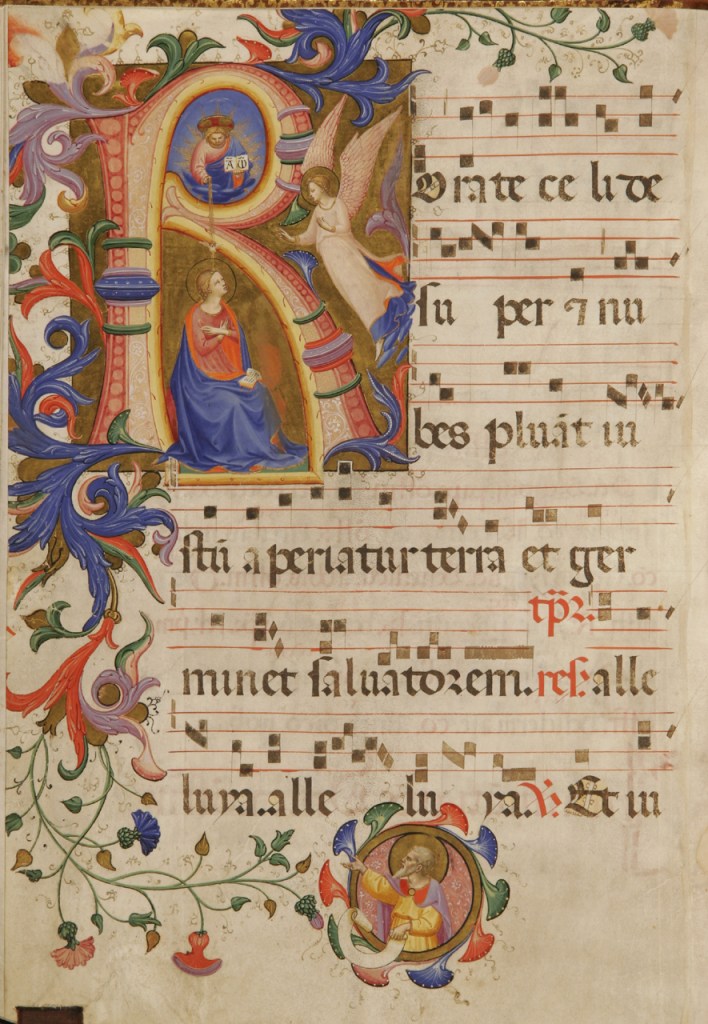 A Ω
R Orate celi de
su per ⁊ nu
bes pluāt iu
stū aperiatur terra et ger
tp̄r.
minet salvatorem.. res. alle
luya..alle lu ya. V. Et iu